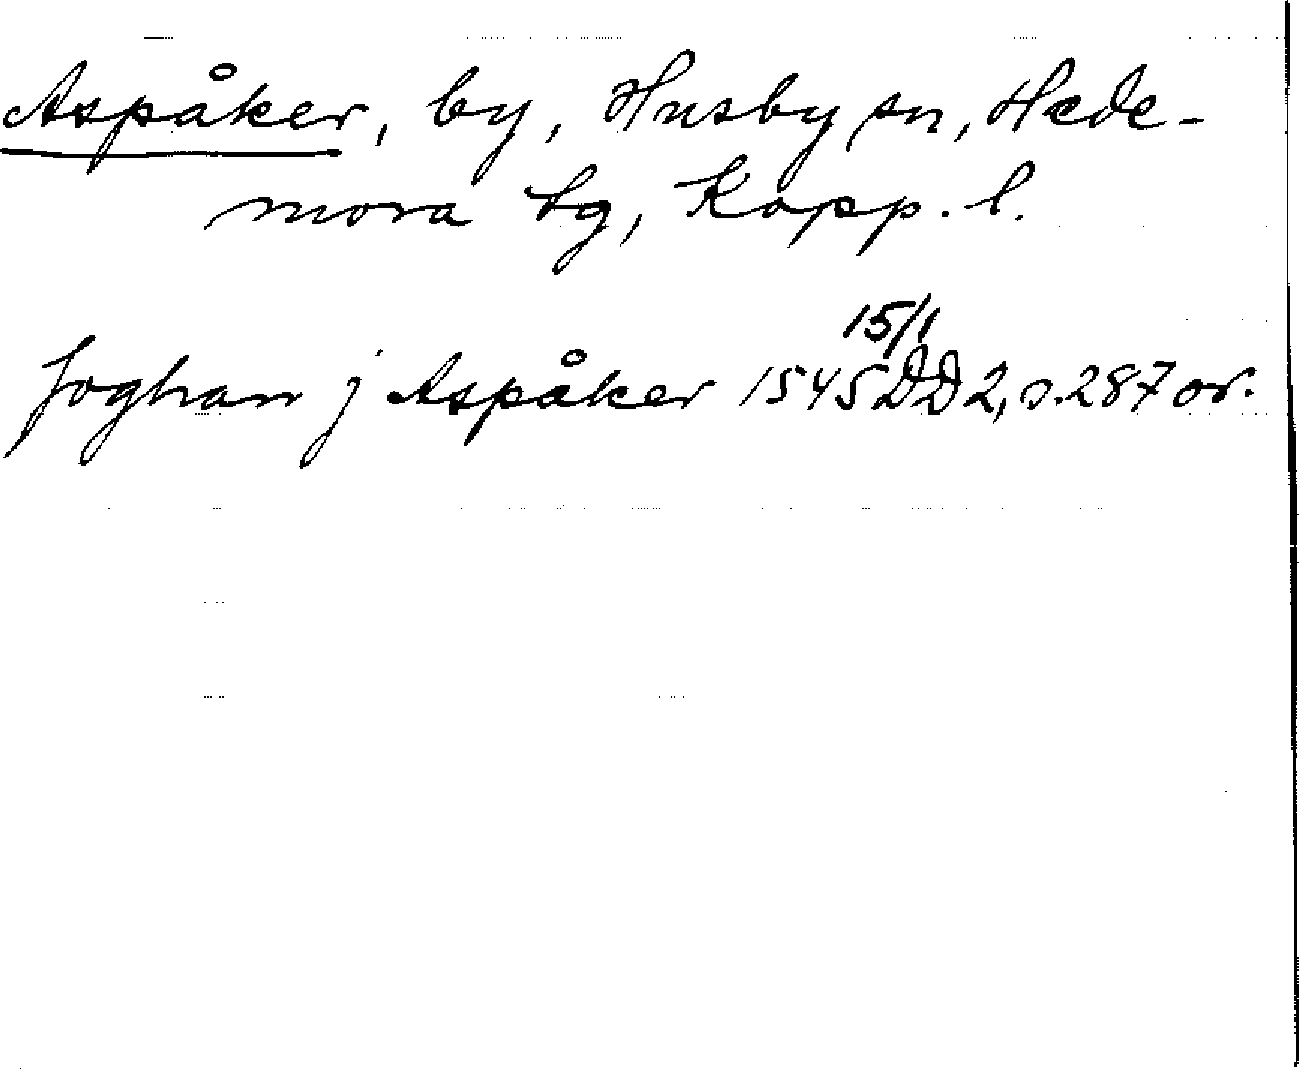 Aspåker, by, Husby sn, Hede-
mora tg, Kopp. l.
15/1
Joghan j Aspåker 1545 DD 2, s. 287 or.